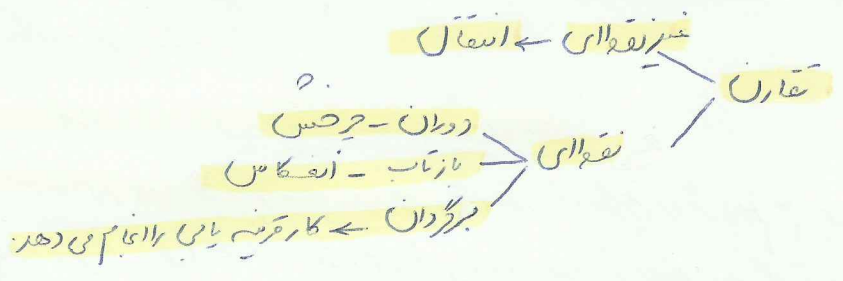 تقارن
غیرنقطه‌ای ← انتقال
نقطه‌ای
دوران - چرخش
بازتاب - انعکاس
برگردان ← کار قرینه یابی را انجام می دهد.